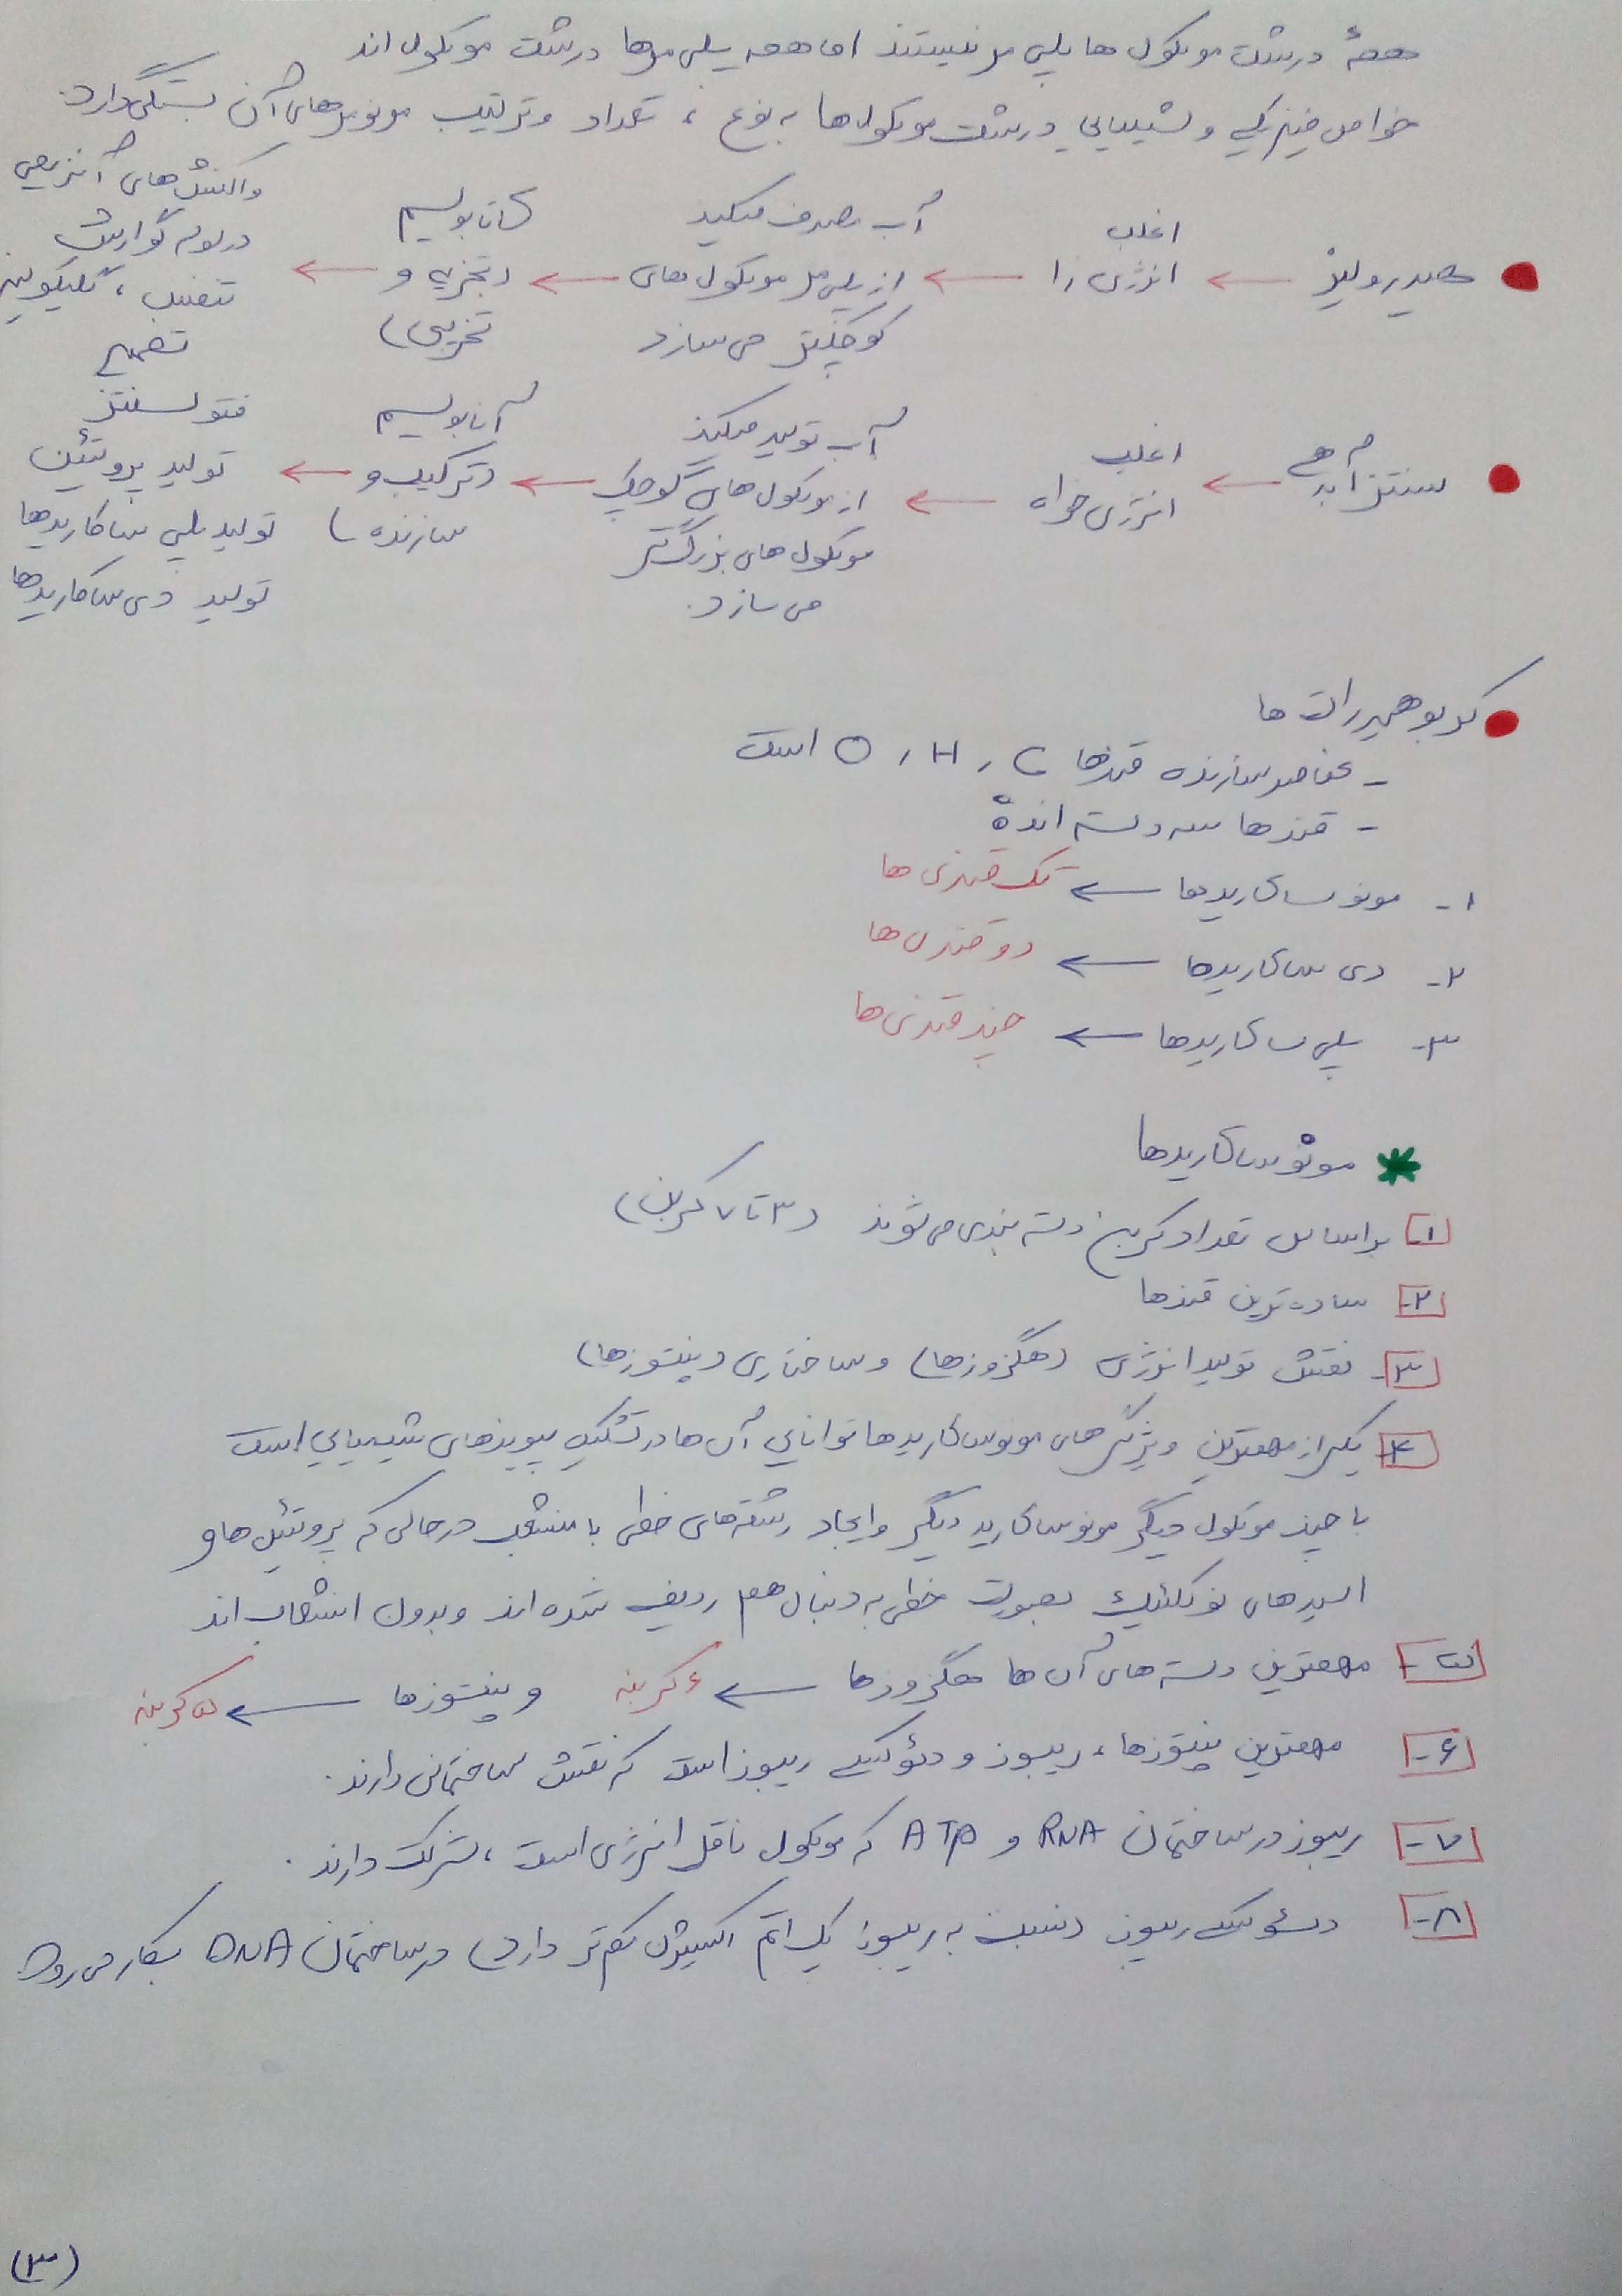 همهٔ درشت مولکول ها پلی مر نیستند اما همه پلی مرها درشت مولکول اند
خواص فیزیکی و شیمیایی درشت مولکول ها به نوع ، تعداد و ترتیب مونومرهای آن بستگی دارد.
● هیدرولیز ← اغلب انرژی زا ← آب مصرف میکند از پلی مر مولکول های کوچکتر می سازد ← کاتابولیسم (تجزیه و تخریبی) ← واکنش های آنزیمی در لوله گوارش تنفس ، گلیکولیز تخمیر
● سنتز آبدهی ← اغلب انرژی خواه ← آب تولید میکند از مولکول های کوچک مولکول های بزرگ تر می سازد. ← آنابولیسم (ترکیب و سازنده) ← فتوسنتز تولید پروتئین تولید پلی ساکاریدها تولید دی ساکاریدها
● کربوهیدرات ها
- عناصر سازنده قندها C , H , O است
- قندها سه دسته اند:
۱- مونوساکاریدها ← تک قندی ها
۲- دی ساکاریدها ← دو قندی ها
۳- پلی ساکاریدها ← چند قندی ها
* مونوساکاریدها
۱- براساس تعداد کربن دسته بندی می شوند (۳ تا ۷ کربن)
۲- ساده ترین قندها
۳- نقش تولید انرژی (هگزوزها) و ساختاری (پنتوزها)
۴- یکی از مهمترین ویژگی های مونوساکاریدها توانایی آن ها در تشکیل پیوندهای شیمیایی است
با چند مولکول دیگر مونوساکارید دیگر و ایجاد رشته های خطی یا منشعب درحالی که پروتئین ها و
اسیدهای نوکلئیک بصورت خطی به دنبال هم ردیف شده اند و بدون انشعاب اند
۵- مهمترین دسته های آن ها هگزوزها ← ۶ کربنه و پنتوزها ← ۵ کربنه
۶- مهمترین پنتوزها ، ریبوز و دئوکسی ریبوز است که نقش ساختمانی دارند.
۷- ریبوز در ساختمان RNA و ATP که مولکول ناقل انرژی است ، شرکت دارند.
۸- دئوکسی ریبوز (نسبت به ریبوز یک اتم اکسیژن کم تر دارد) در ساختمان DNA بکار می رود.
(۳)